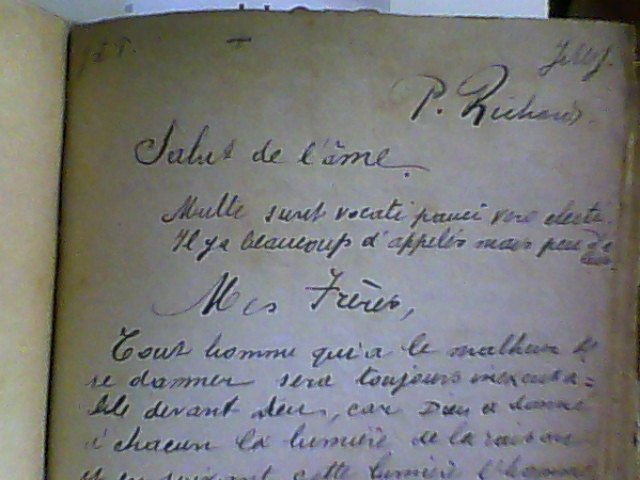 +
P. Richard.
Salut de l'âme.
Multi sunt vocati pauci vero electi.
Il y a beaucoup d'appelés mais peu
Mes Frères,
Tout homme qui a le malheur de
se damner sera toujours inexcusa=
ble devant Dieu, car Dieu a donné
à chacun la lumière de la raison
cette lumière l'homme